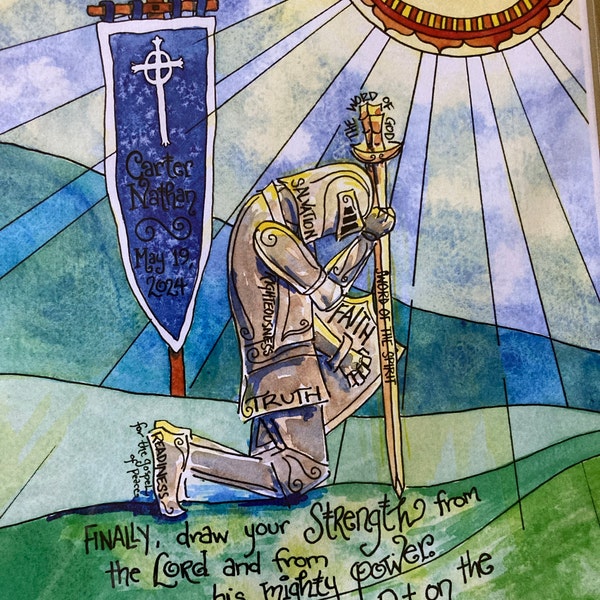 THE WORD OF GOD
Carter
Nathan
May 19
2024
SALVATION
RIGHTEOUSNESS
FAITH
SWORD OF THE SPIRIT
TRUTH
READINESS
for the gospel
of peace
FINALLY, draw your Strength from
the LORD and from
his mighty power
on the